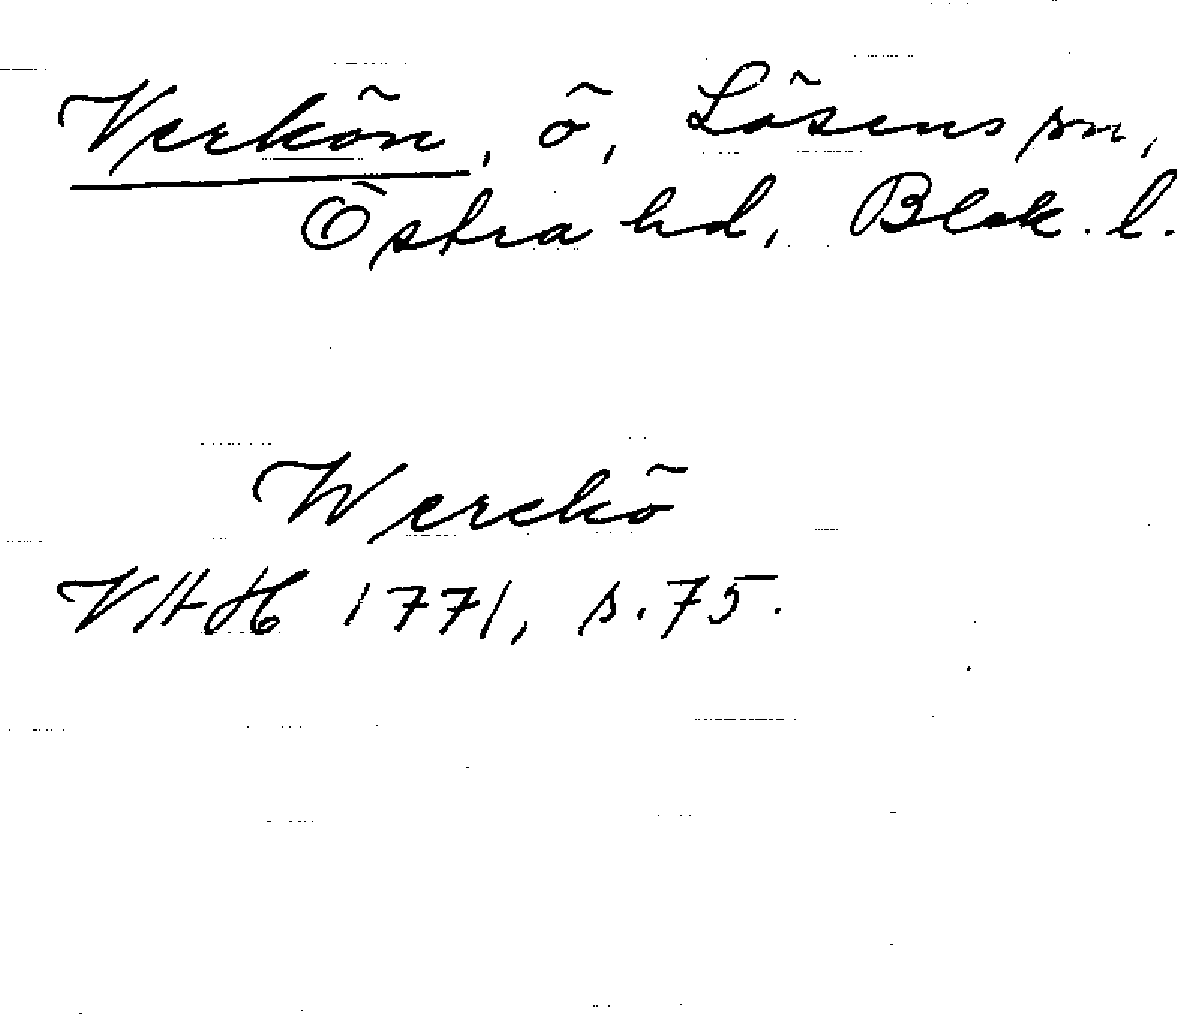 Verkön, ö, Lösens sn,
Östra hd, Blek. l.
Werckö
VHH 1771, s. 75.